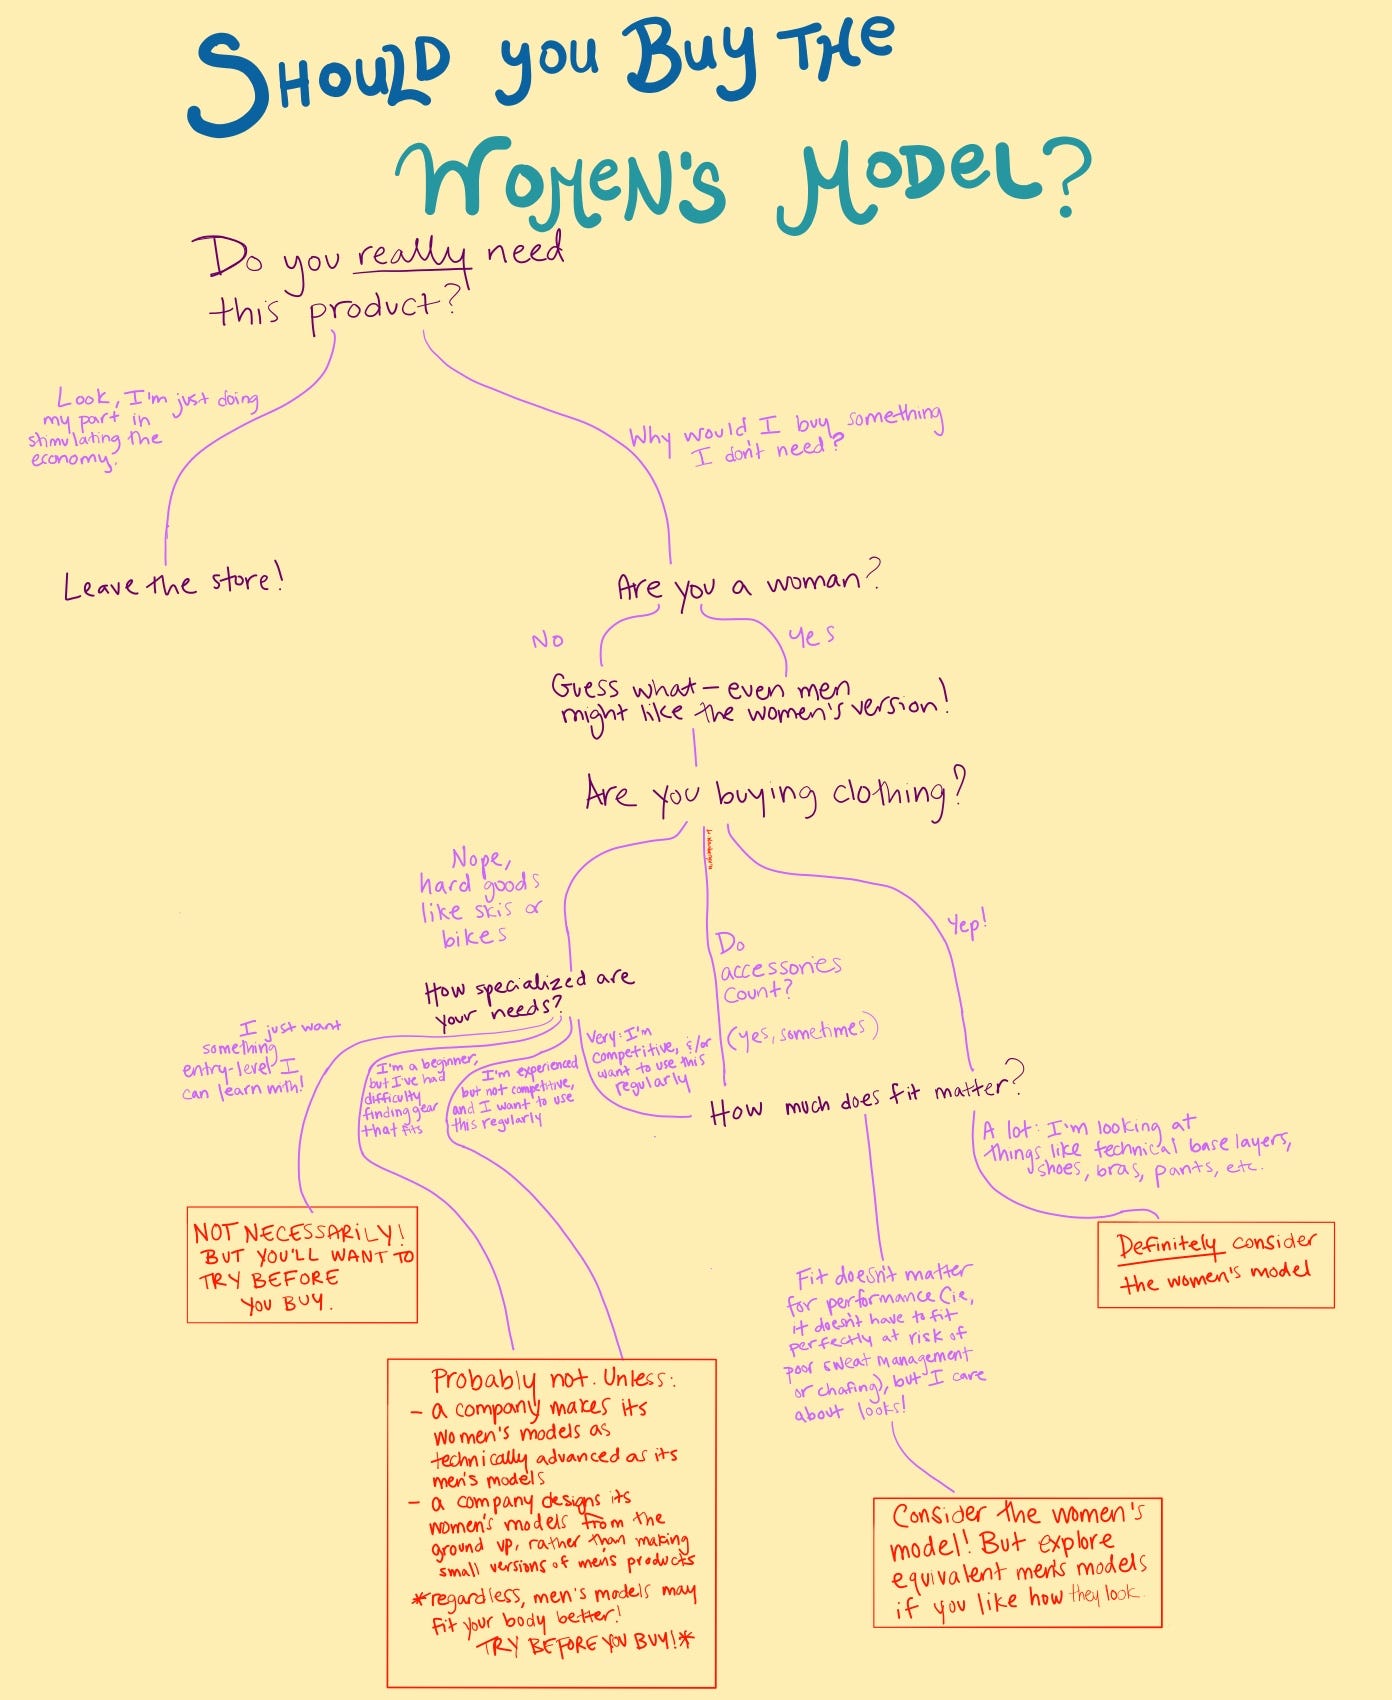 SHOULD you BUY THE
WOMEN'S MODEL?
Do you really need
this product?
Look, I'm just doing
my part in
stimulating the
economy.
Why would I buy something
I don't need?
Leave the store!
Are you a woman?
No
Yes
Guess what – even men
might like the women's version!
Are you buying clothing?
Nope,
hard goods
like skis or
bikes
Do
accessories
count?
(yes, sometimes)
Yep!
How specialized are
your needs?
I just want
something
entry-level I
can learn with!
I'm a beginner,
but I've had
difficulty
finding gear
that fits
I'm experienced
but not competitive,
and I want to use
this regularly
Very: I'm
competitive, &/or
want to use this
regularly
How much does fit matter?
A lot: I'm looking at
things like technical base layers,
shoes, bras, pants, etc.
NOT NECESSARILY!
BUT YOU'LL WANT TO
TRY BEFORE
YOU BUY.
Definitely consider
the women's model
Fit doesn't matter
for performance (ie,
it doesn't have to fit
perfectly at risk of
poor sweat management
or chafing), but I care
about looks!
Probably not. Unless:
- a company makes its
women's models as
technically advanced as its
men's models
- a company designs its
women's models from the
ground up, rather than making
small versions of men's products
*regardless, men's models may
fit your body better!
TRY BEFORE YOU BUY!*
Consider the women's
model! But explore
equivalent men's models
if you like how they look.